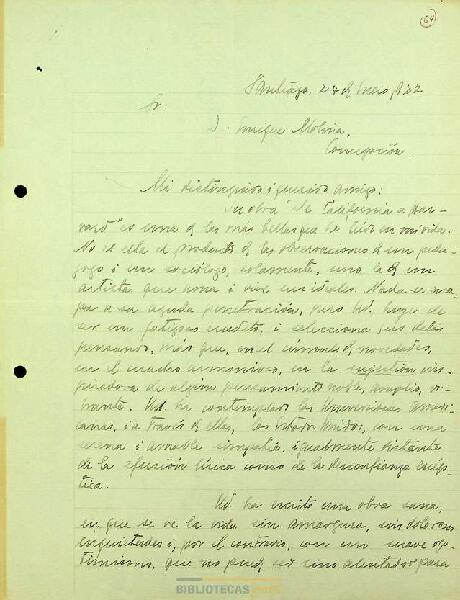 64
Santiago, 28 de Enero, 922
Sr.
D. Enrique Molina,
Concepción
Mi distinguido i querido amigo:
su obra "De California a Harvard" es una de las mas bellas que he leido en mi vida.
No es ella el producto de las observaciones de un peda-
gogo i un sociólogo, solamente, sino la de un
artista que sueña i vive sus ideales. Nada es-
capa a su aguda penetración, pero Ud. huye de
ser un fatigoso erudito, i selecciona sus datos
pensando, más que en el cúmulo de novedades,
en el cuadro armonioso, en la sugestión ins-
piradora de algún pensamiento noble, amplio, vi-
brante. Ud. ha contemplado las Universidades Ameri-
canas, i a través de ellas, los Estados Unidos, con una
serena i amable simpatía, igualmente distante
de la efusión lírica como de la desconfianza escép-
tica.
Ud. ha escrito una obra sana,
en que se ve la vida sin amargura, sin dolorosas
inquietudes i, por el contrario, con un suave op-
timismo, que no puede ser sino alentador para
BIBLIOTECAS